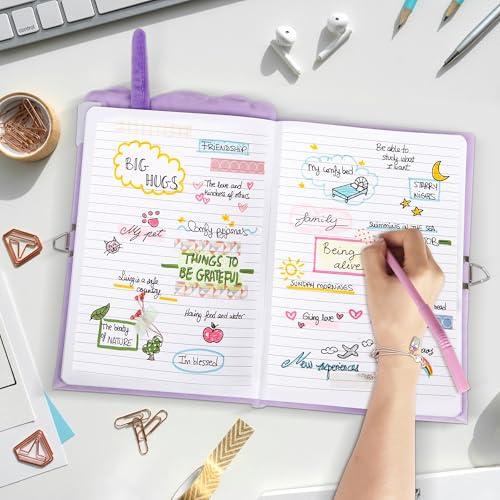 FRIENDSHIP
BIG
HUGS
The love and
kindness of others
My pet
Comfy Pyjamas
THINGS TO
BE GRATEFUL
Living in a safe
country
Having food and water
The beauty
of NATURE
I'm blessed
Be able to
study what
I want
My comfy bed
STARRY
NIGHTS
family
SWIMMING IN THE SEA
Being
alive
SUNDAY MORNINGS
Giving love
New experiences